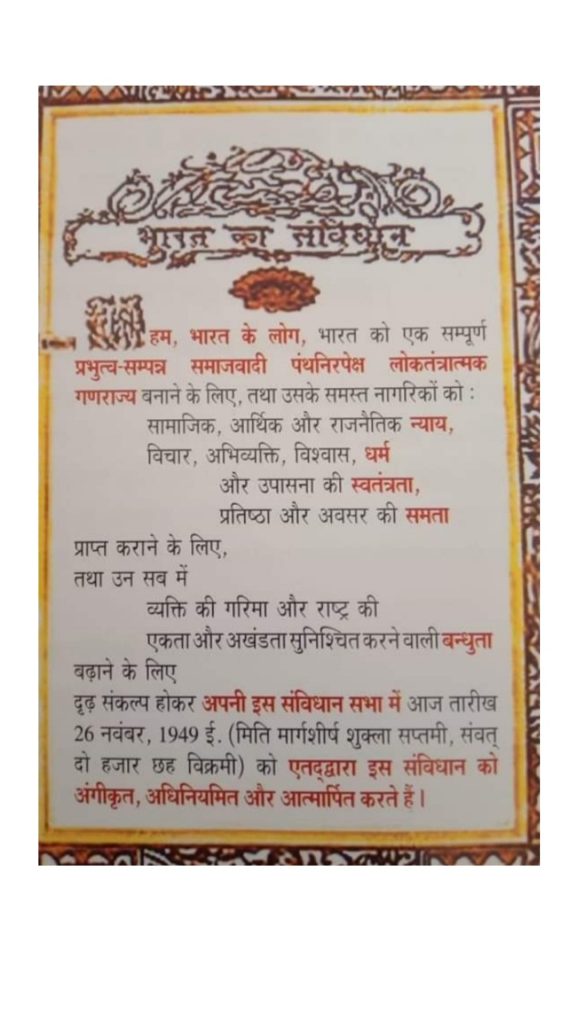 भारत का संविधान
हम, भारत के लोग, भारत को एक सम्पूर्ण
प्रभुत्व-सम्पन्न समाजवादी पंथनिरपेक्ष लोकतंत्रात्मक
गणराज्य बनाने के लिए, तथा उसके समस्त नागरिकों को :
सामाजिक, आर्थिक और राजनैतिक न्याय,
विचार, अभिव्यक्ति, विश्वास, धर्म
और उपासना की स्वतंत्रता,
प्रतिष्ठा और अवसर की समता
प्राप्त कराने के लिए,
तथा उन सब में
व्यक्ति की गरिमा और राष्ट्र की
एकता और अखंडता सुनिश्चित करने वाली बन्धुता
बढ़ाने के लिए
दृढ़ संकल्प होकर अपनी इस संविधान सभा में आज तारीख
26 नवंबर, 1949 ई. (मिति मार्गशीर्ष शुक्ला सप्तमी, संवत्
दो हजार छह विक्रमी) को एतद्द्वारा इस संविधान को
अंगीकृत, अधिनियमित और आत्मार्पित करते हैं।